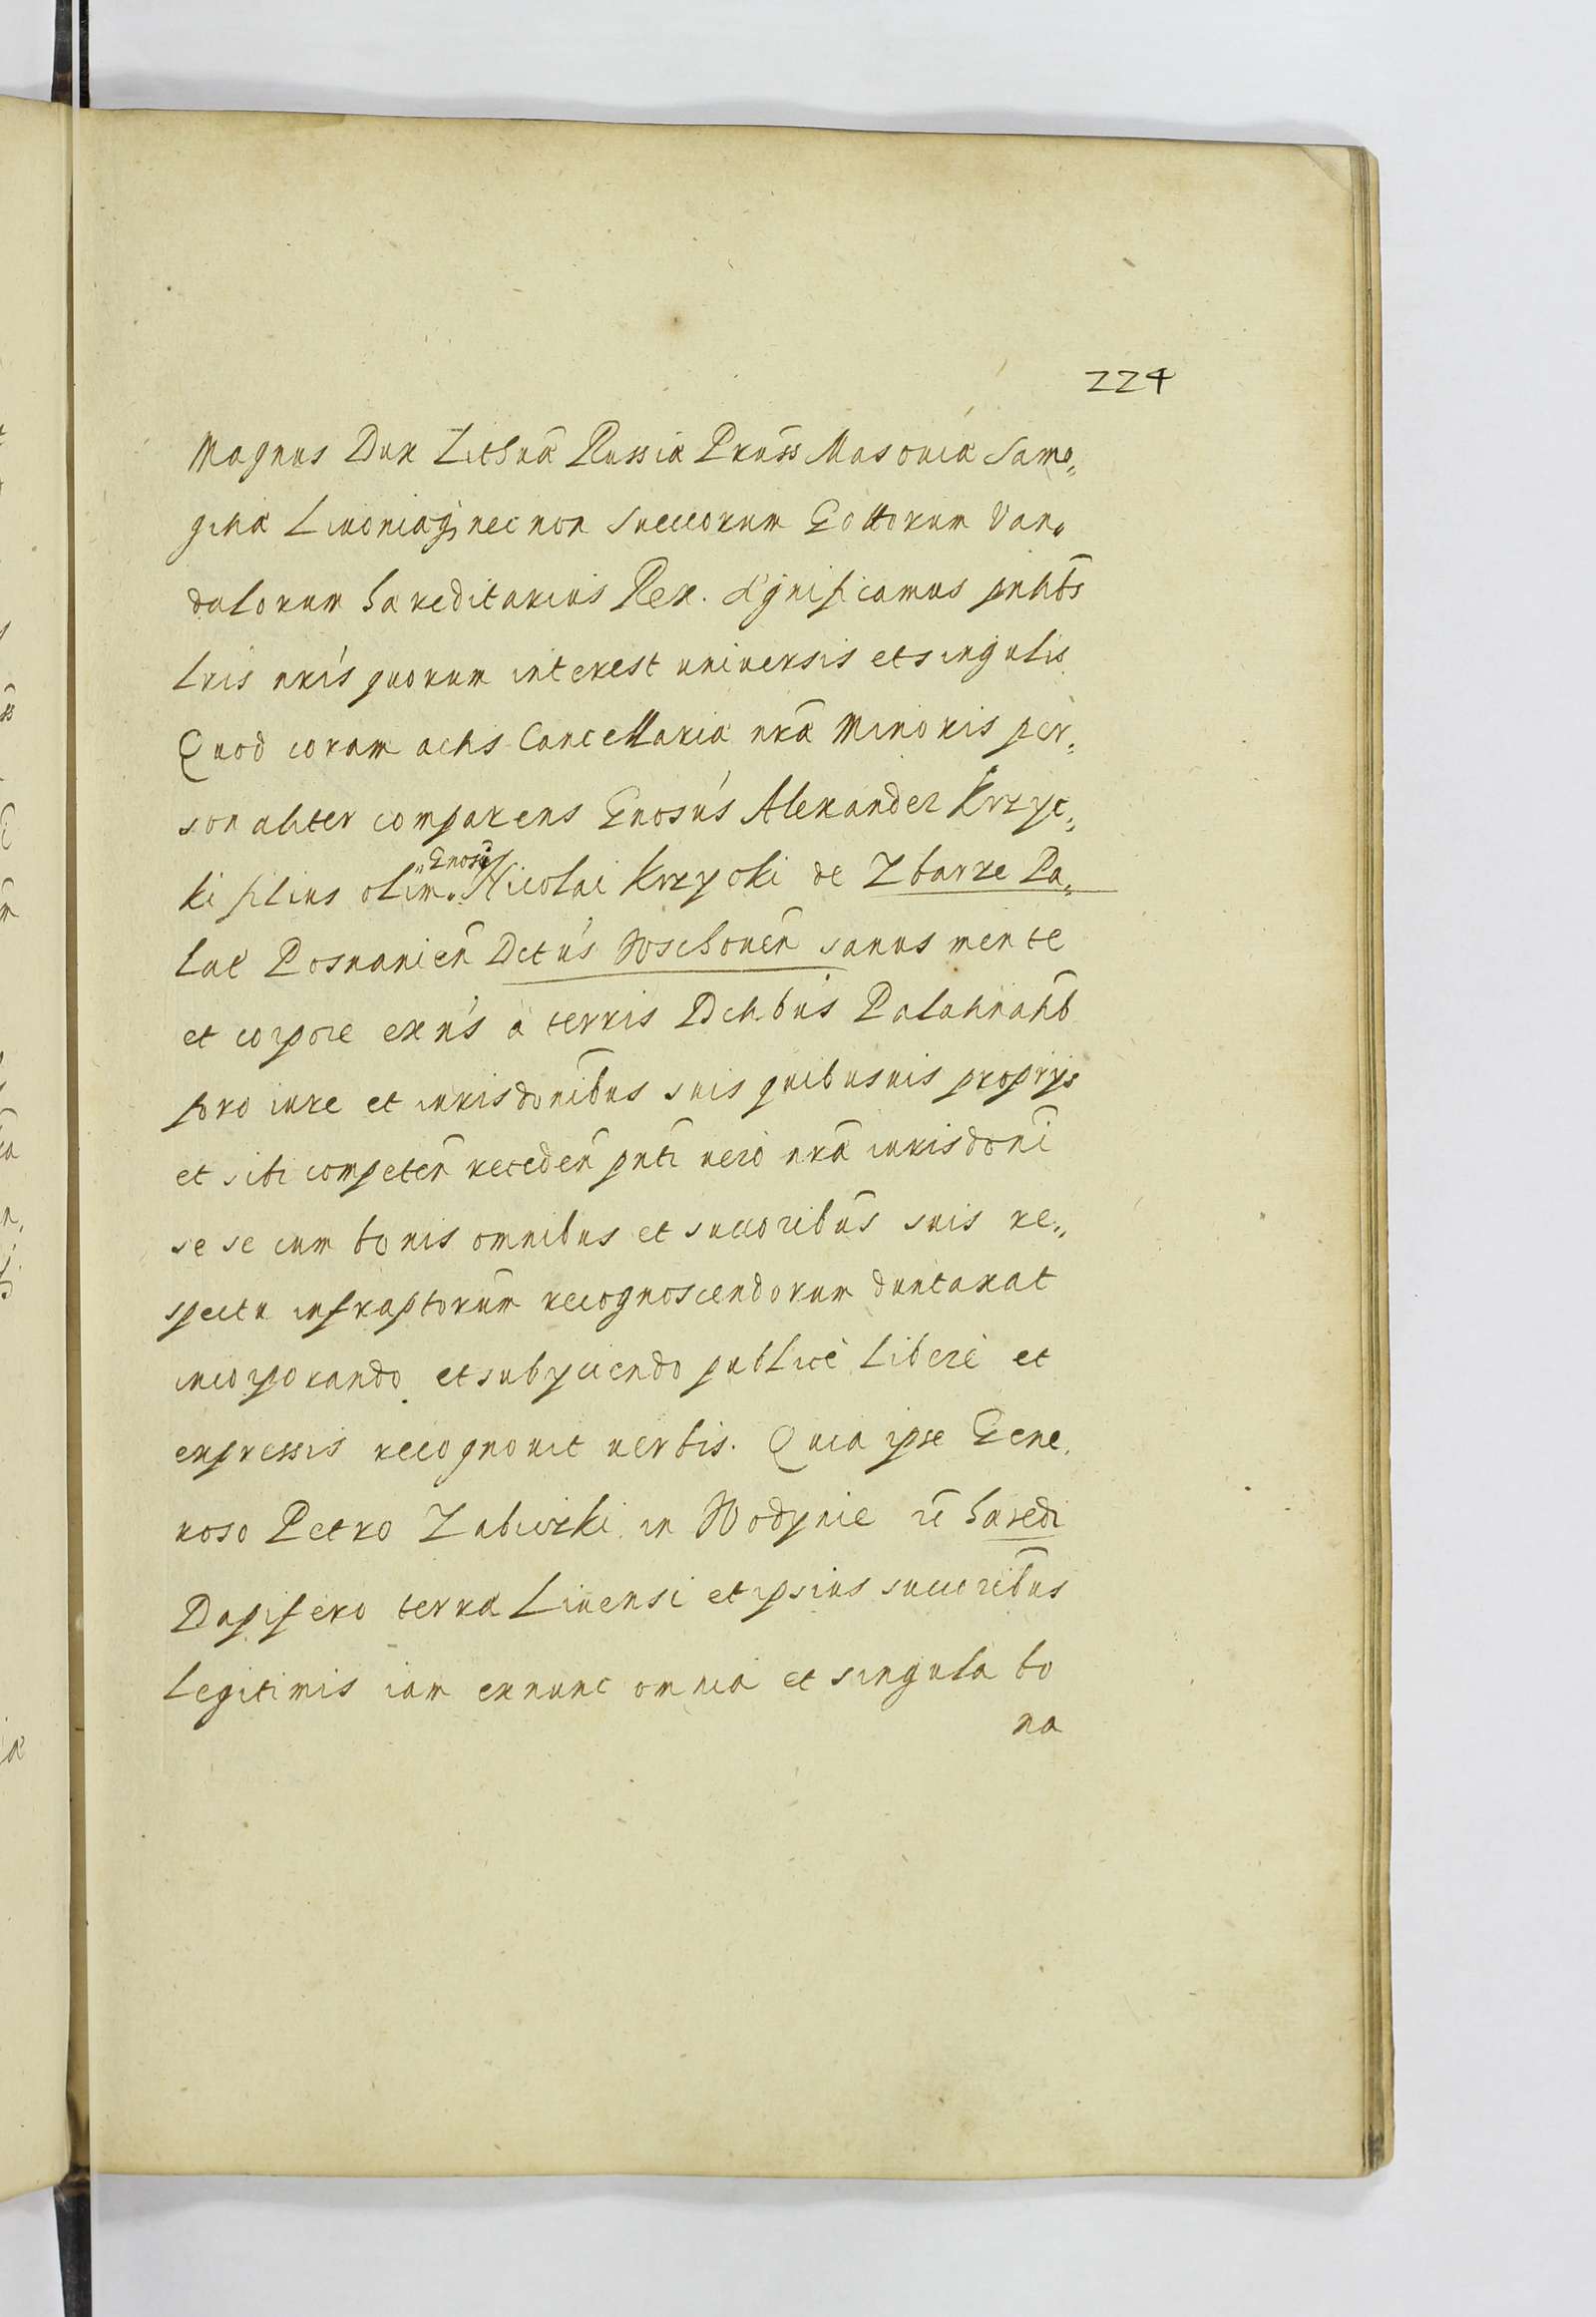 224
Magnus Dux Lithuã Russiæ Prũss Masouiæ Samo„
gitiæ Liuoniæq̃ necnon Sueccorum Gottorum Van„
dalorum hæreditarius Rex. Significamus pñtibs̃
Lris nris quorum interest uniuersis et singulis
Quod coram actis Cancellariæ nrã Minoris per„
sonaliter comparens Gnosus Alexander Krzyc„
ki filius olim „Gnosi Nicolai Krzycki de Zbarze Pa„
lat̃ Posnanieñ Dctus Wschoueñ sanus mente
et corpore exñs a terris Dctibus Palatinatib̃
foro iure et iurisdonib̃us suis quibusuis proprijs
et sibi competeñ recedeñ pnti uero nrã iurisdoni
se se cum bonis omnibus et succoribũs suis re„
spectu infraptorũm recognoscendorum duntaxat
incorporando et subyciendo publicè liberè et
expressis recognouit uerbis. Quia ipse Gene
roso Petro Zabiczki in Wodynie zẽ hæredi
Dapifero terræ Liuensi et ipsius succorib̃us
legitimis iam exnunc omnia et singula bo
na